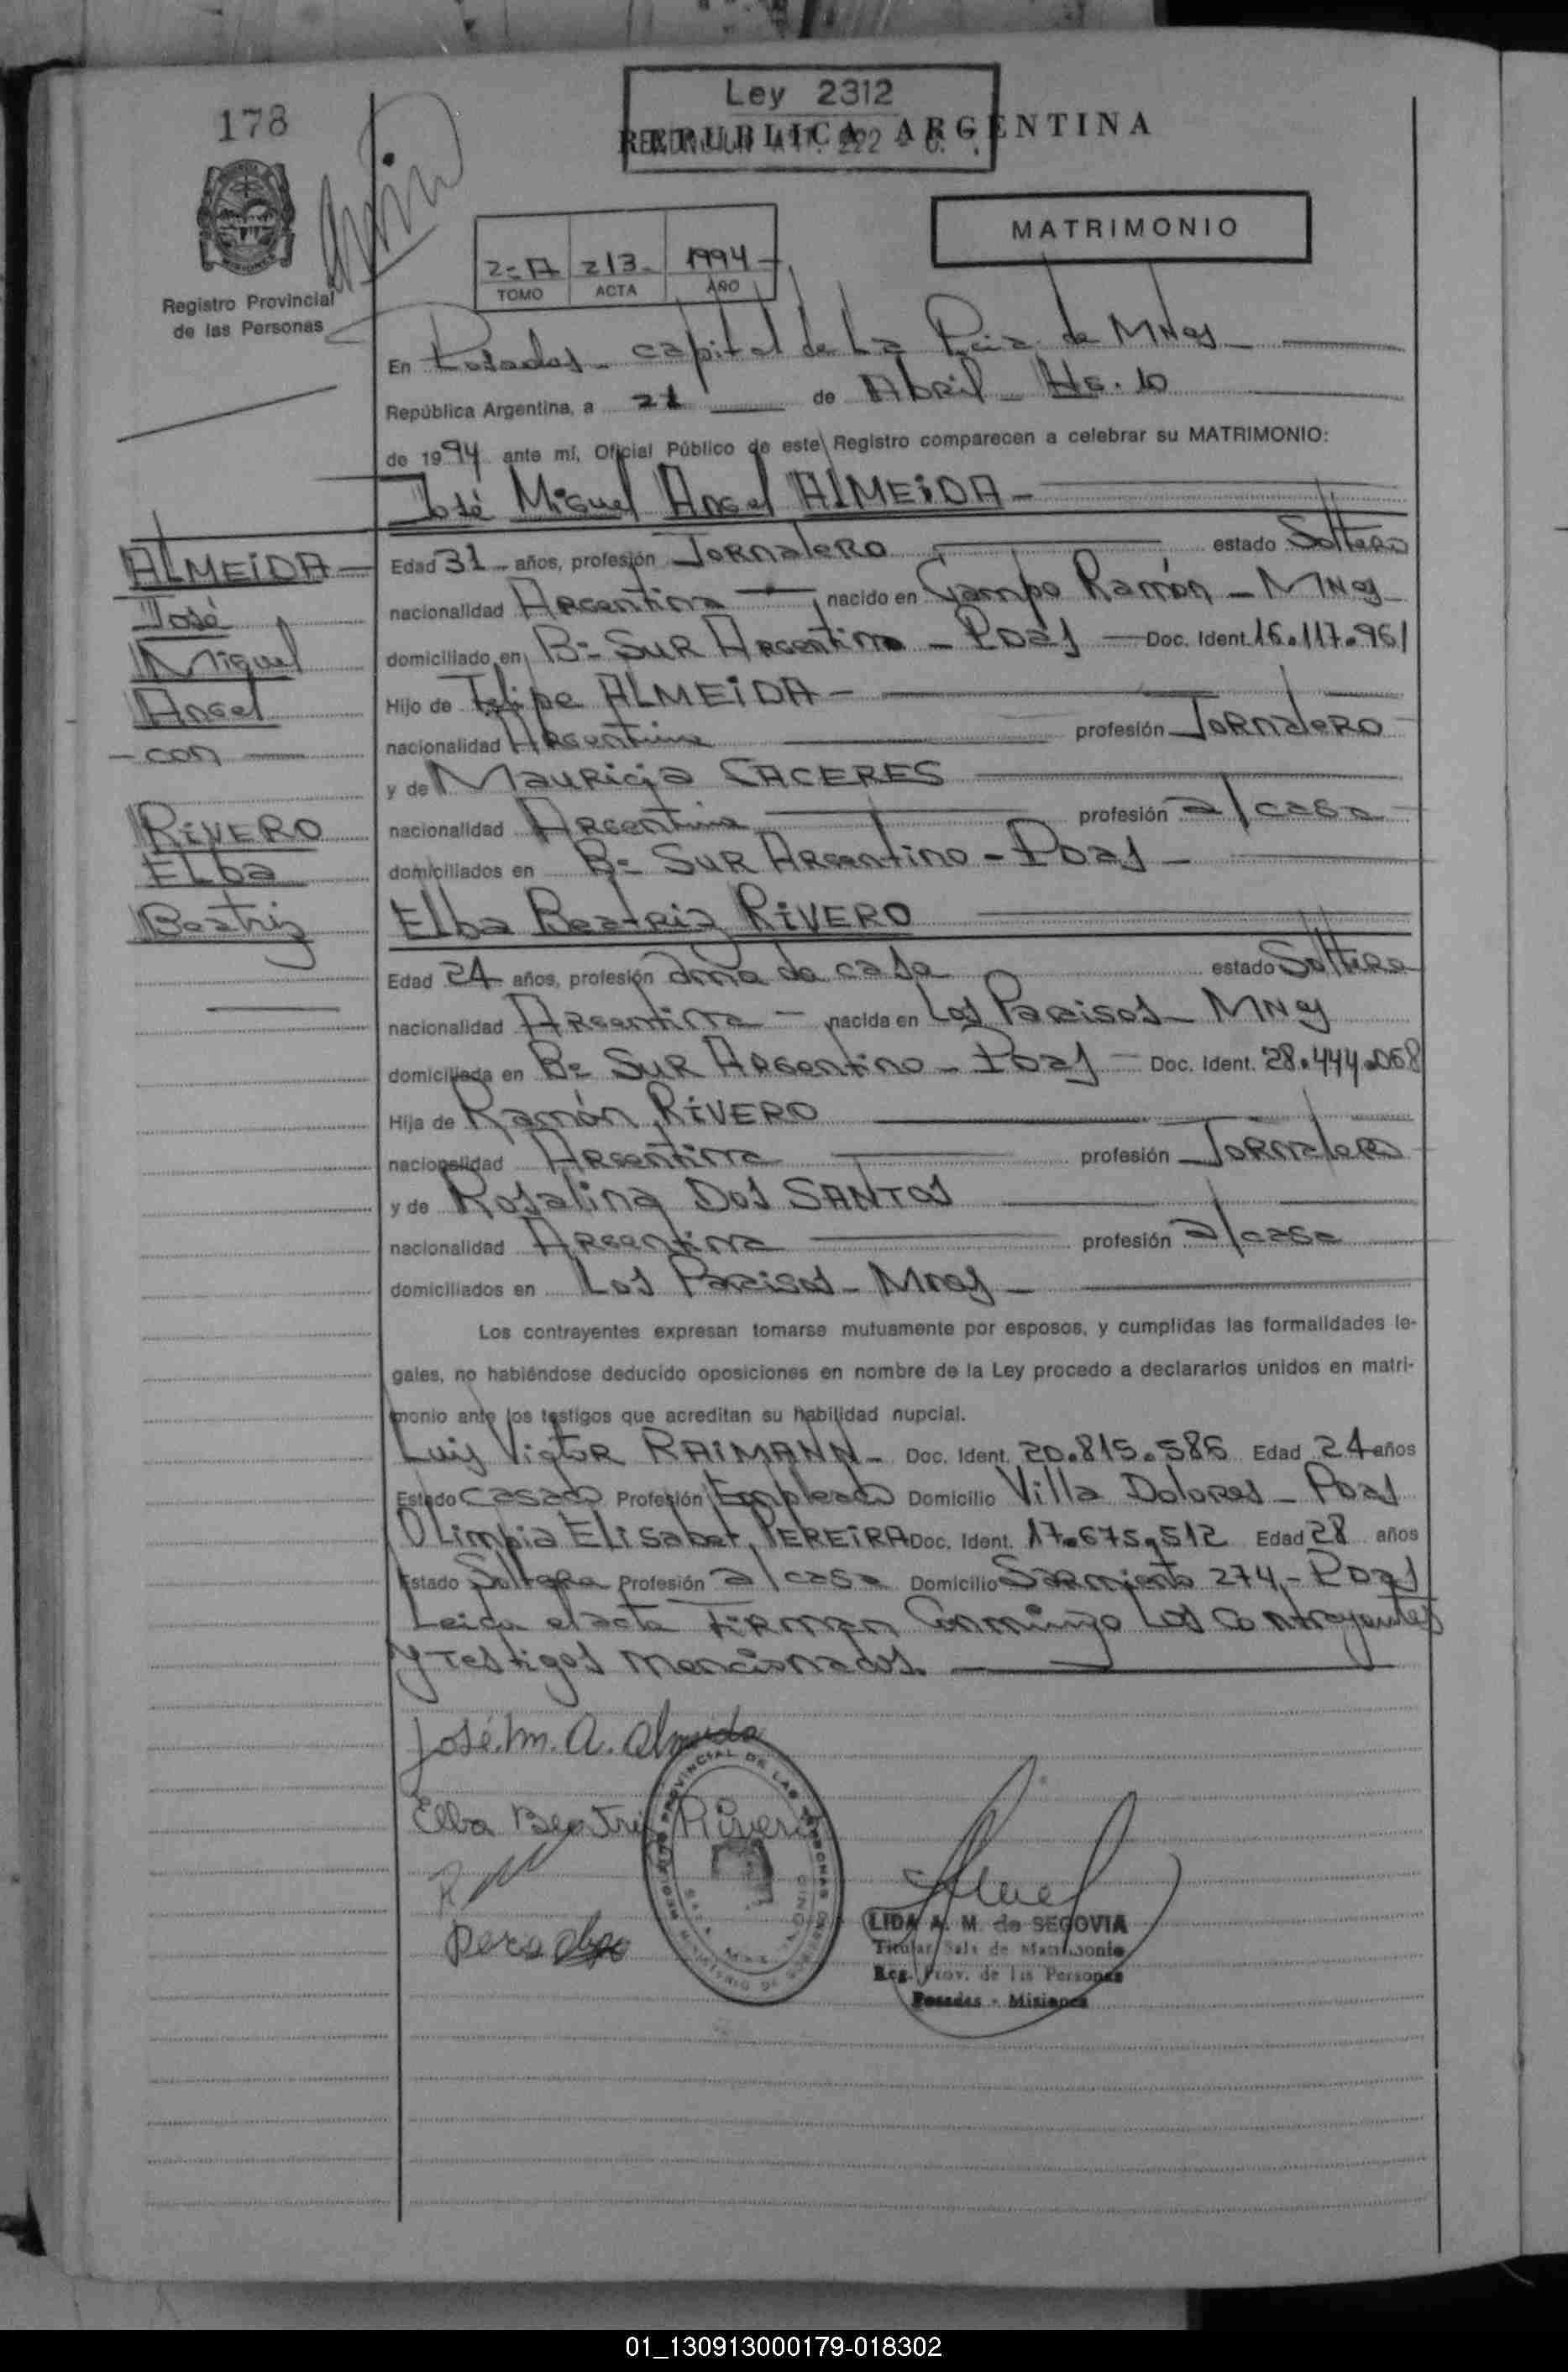 178
Ley 2312
REPUBLICA ARGENTINA
MATRIMONIO
2-A 213- 1994-
TOMO ACTA AÑO
Registro Provincial
de las Personas
En Posadas - capital de La Pcia de MNes
República Argentina, a 21 de Abril - Hs. 10
de 1994 ante mí, Oficial Público de este Registro comparecen a celebrar su MATRIMONIO:
José Miguel Angel ALMEIDA -
ALMEIDA -
José
Miguel
Angel
- con -
RIVERO
Elba
Beatriz
Edad 31 - años, profesión JORNALERO estado Soltero
nacionalidad Argentina - nacido en Campo Ramón - MNes
domiciliado en B= SUR Argentino - Pdas - Doc. Ident. 16.117.961
Hijo de Felipe ALMEIDA -
nacionalidad Argentina profesión JORNALERO
y de Mauricia CACERES
nacionalidad Argentina profesión a/casa
domiciliados en B= SUR Argentino - Pdas -
Elba Beatriz RIVERO
Edad 24 años, profesión ama de casa estado Soltera
nacionalidad Argentina - nacida en Los Paraisos - MNes
domiciliada en B= SUR Argentino - Pdas - Doc. Ident. 28.444.068
Hija de Ramón RIVERO
nacionalidad Argentina profesión Jornalero
y de Rosalina Dos SANTOS
nacionalidad Argentina profesión a/casa
domiciliados en Los Paraisos - Mnes -
Los contrayentes expresan tomarse mutuamente por esposos, y cumplidas las formalidades le-
gales, no habiéndose deducido oposiciones en nombre de la Ley procedo a declararlos unidos en matri-
monio ante los testigos que acreditan su habilidad nupcial.
Luis Victor RAIMANN - Doc. Ident. 20.815.586 Edad 24 años
Estado casado Profesión Empleado Domicilio Villa Dolores - Pdas
Olimpia Elisabet PEREIRA Doc. Ident. 17.675.512 Edad 28 años
Estado Soltera Profesión a/casa Domicilio Sarmiento 274 - Pdas
Leida el acta Firman Conmigo Los Contrayentes
y Testigos mencionados.
José. M. A. Almeida
Elba Beatriz Rivero
LIDA A. M. de SEGOVIA
Titular Sala de Matrimonio
Reg. Prov. de las Personas
Posadas - Misiones
01_130913000179-018302